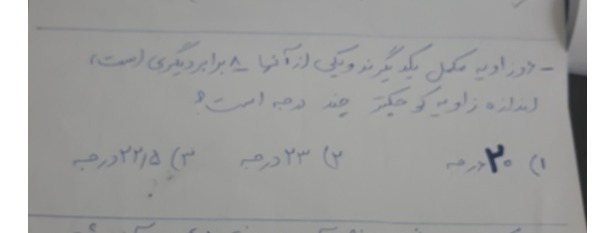 - دو زاویه مکمل یکدیگرند ویکی از آنها ۸ برابر دیگری است،
اندازه زاویه کوچکتر چند درجه است؟
۱) ۲۰ درجه ۲) ۲۳ درجه ۳) ۲۲/۵ درجه